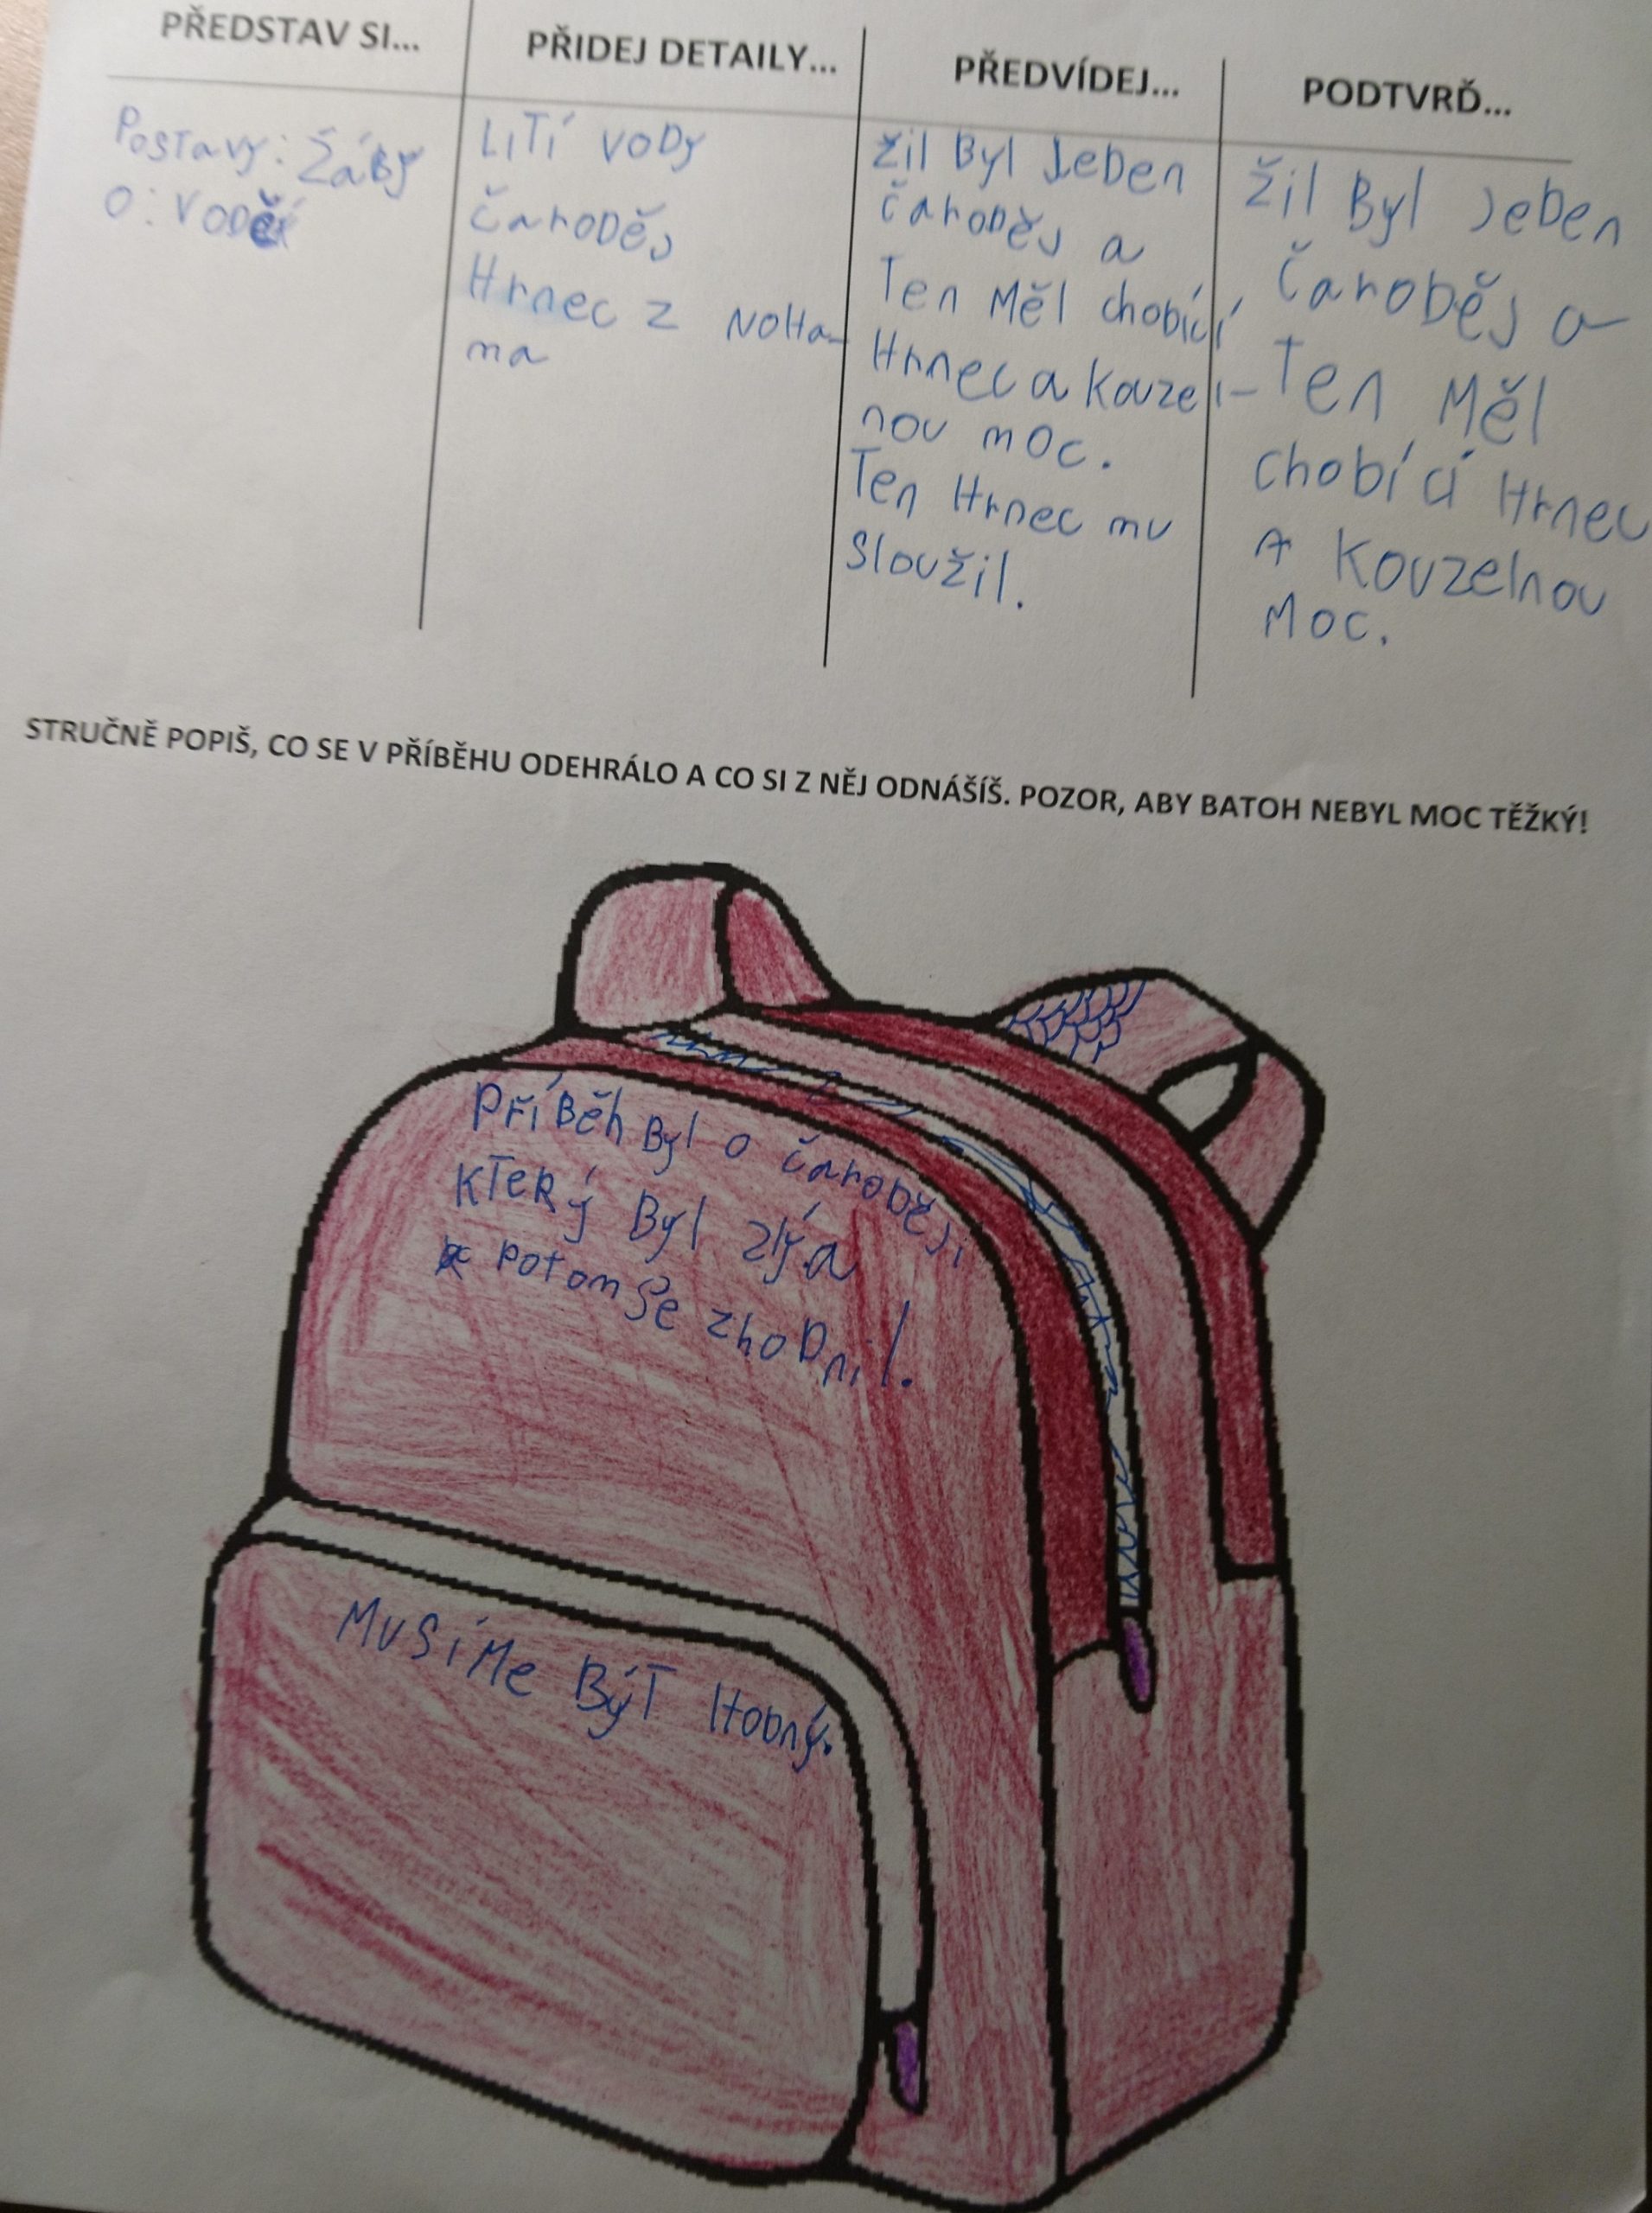 PŘEDSTAV SI...
Postavy: Žáby
O: Vodě
PŘIDEJ DETAILY...
Lití vody
čaroděj
Hrnec z noha-
ma
PŘEDVÍDEJ...
Žil Byl Jeden
čaroděj a
Ten Měl chobící
Hrnec a kouzel-
nou moc.
Ten Hrnec mu
Sloužil.
PODTVRĎ...
Žil Byl Jeden
Čaroděj a
Ten Měl
chobící Hrnec
A Kouzelnou
Moc.
STRUČNĚ POPIŠ, CO SE V PŘÍBĚHU ODEHRÁLO A CO SI Z NĚJ ODNÁŠÍŠ. POZOR, ABY BATOH NEBYL MOC TĚŽKÝ!
Příběh Byl o čaroději
Který Byl zlý a
potom se zhodnil.
Musíme Být Hodný.